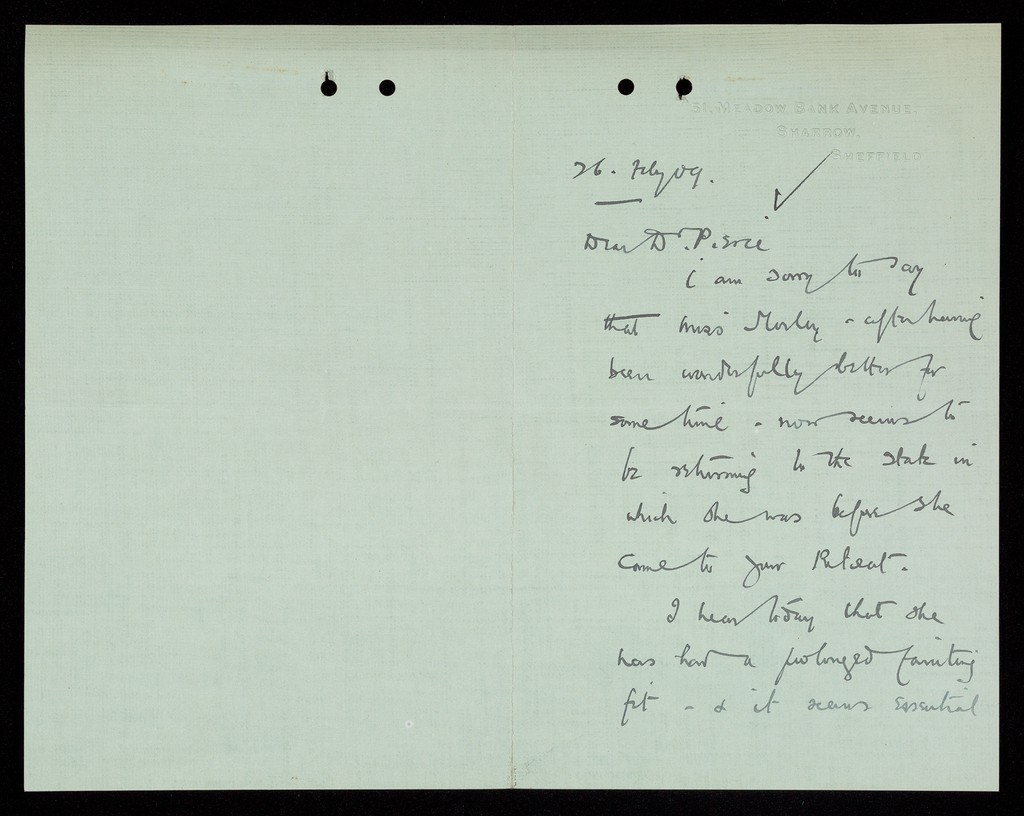 31. MEADOW BANK AVENUE.
SHARROW.
SHEFFIELD.
26. Feby 09.
Dear Dr. Pierce
I am sorry to say
that Miss Morley - after having
been wonderfully better for
some time - now seems to
be returning to the state in
which she was before she
came to your Retreat.
I hear today that she
has had a prolonged fainting
fit - & it seems essential